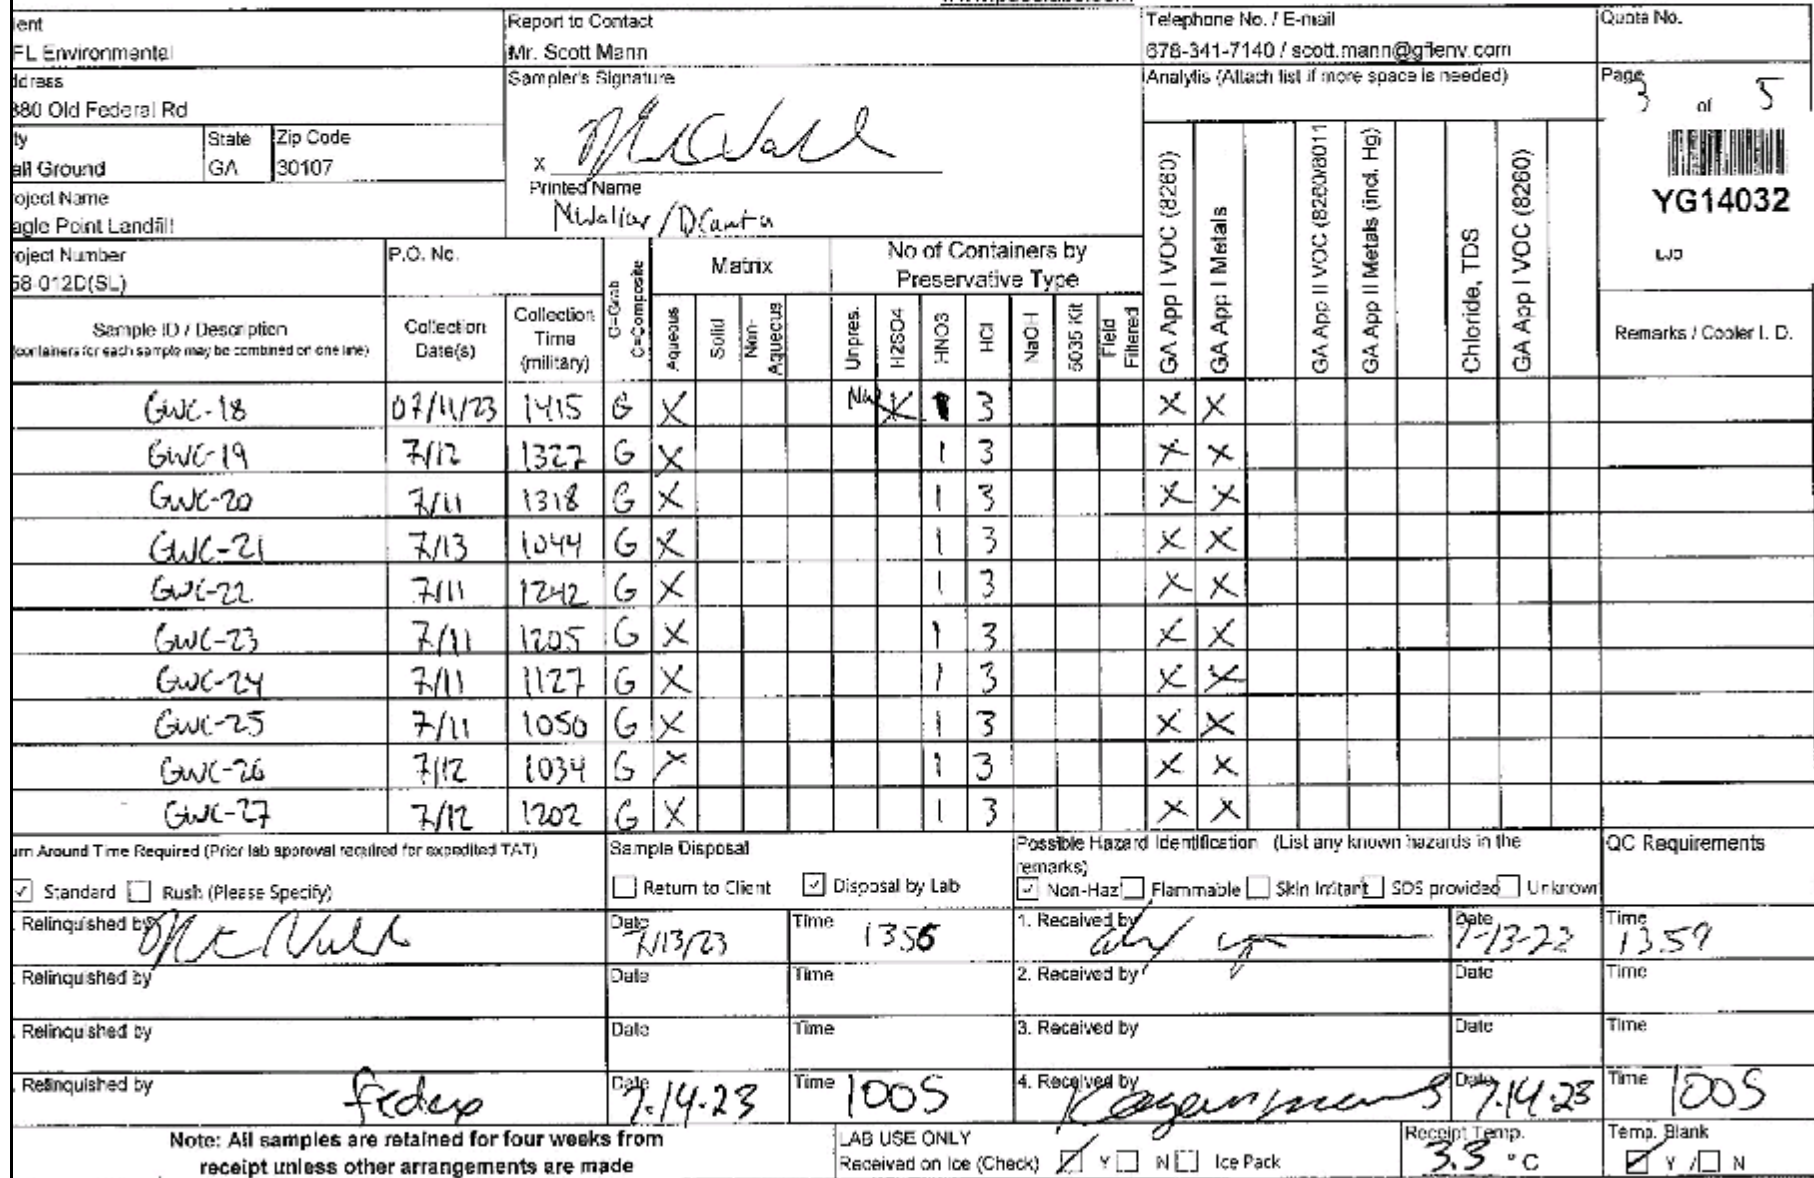 ient
Report to Contact
Telephone No. / E-mail
Quote No.
FL Environmental
Mr. Scott Mann
678-341-7140 / scott.mann@gflenv.com
ddress
Sampler's Signature
Analyis (Attach list if more space is needed)
Page 3 of 5
380 Old Federal Rd
ty
State
Zip Code
all Ground
GA
30107
x
Printed Name
oject Name
agle Point Landfill
YG14032
LJD
oject Number
P.O. No.
58-012D(SL)
G=Grab C=Composite
Matrix
No of Containers by
Preservative Type
Sample ID / Description
(containers for each sample may be combined on one line)
Collection Date(s)
Collection Time (military)
Aqueous
Solid
Non-Aqueous
Unpres.
H2SO4
HNO3
HCl
NaOH
5035 Kit
Field Filtered
GA App I VOC (8260)
GA App I Metals
GA App II VOC (8260/8011
GA App II Metals (incl. Hg)
Chloride, TDS
GA App I VOC (8260)
Remarks / Cooler I. D.
GWC-18 07/11/23 1415 G X X 1 3 X X
GWC-19 7/12 1327 G X 1 3 X X
GWC-20 7/11 1318 G X 1 3 X X
GWC-21 7/13 1044 G X 1 3 X X
GWC-22 7/11 1242 G X 1 3 X X
GWC-23 7/11 1205 G X 1 3 X X
GWC-24 7/11 1127 G X 1 3 X X
GWC-25 7/11 1050 G X 1 3 X X
GWC-26 7/12 1034 G X 1 3 X X
GWC-27 7/12 1202 G X 1 3 X X
urn Around Time Required (Prior lab approval required for expedited TAT)
✓ Standard Rush (Please Specify)
Sample Disposal
Return to Client ✓ Disposal by Lab
Possible Hazard Identification (List any known hazards in the
remarks)
✓ Non-Haz Flammable Skin Irritant SDS provided Unknown
QC Requirements
. Relinquished by Date 7/13/23 Time 1356 1. Received by Date 7-13-23 Time 13:59
. Relinquished by Date Time 2. Received by Date Time
. Relinquished by Date Time 3. Received by Date Time
. Relinquished by fedex Date 7.14.23 Time 1005 4. Received by Date 7.14.23 Time 1005
Note: All samples are retained for four weeks from
receipt unless other arrangements are made
LAB USE ONLY
Received on Ice (Check) ✓ Y N Ice Pack
Receipt Temp.
3.3 °C
Temp. Blank
✓ Y / N